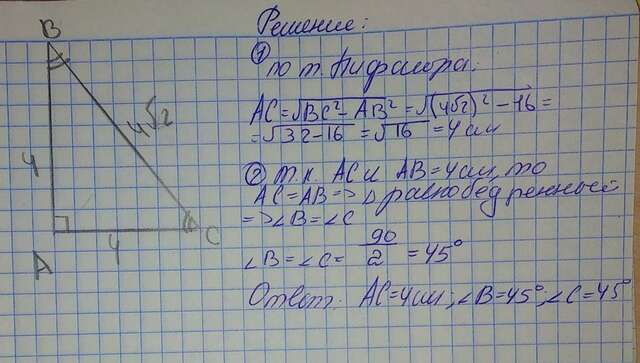 B
4
4√2
A
4
C
Решение:
① по т. Пифагора:
AC=√BC²-AB² = √(4√2)²-16 =
=√32-16 = √16 = 4 см
② т.к. AC и AB=4см, то
AC=AB => Δ равнобедренный
=> ∠B=∠C
∠B=∠C= 90/2 = 45°
Ответ: AC=4см; ∠B=45°; ∠C=45°